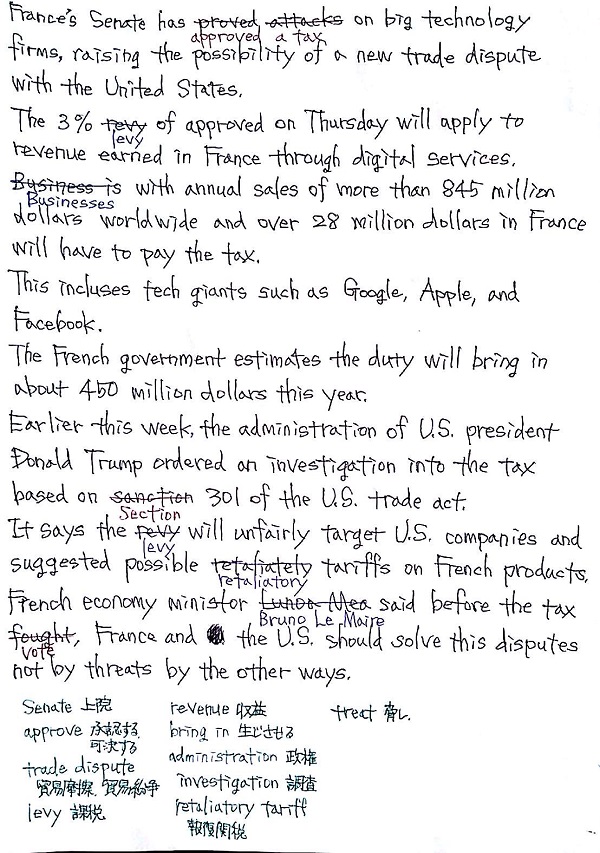 France's Senate has proved attacks on big technology
approved a tax
firms, raising the possibility of a new trade dispute
with the United States.
The 3% revy of approved on Thursday will apply to
levy
revenue earned in France through digital services.
Business is with annual sales of more than 845 million
Businesses
dollars worldwide and over 28 million dollars in France
will have to pay the tax.
This incluses tech giants such as Google, Apple, and
Facebook.
The French government estimates the duty will bring in
about 450 million dollars this year.
Earlier this week, the administration of U.S. president
Donald Trump ordered an investigation into the tax
based on sanction 301 of the U.S. trade act.
Section
It says the revy will unfairly target U.S. companies and
levy
suggested possible retaliately tariffs on French products.
retaliatory
French economy minister Lunon Mea said before the tax
Bruno Le Maire
fought, France and the U.S. should solve this disputes
vote
not by threats by the other ways.
Senate 上院
approve 承認する
可決する
trade dispute
貿易摩擦、貿易紛争
levy 課税
revenue 収益
bring in 生じさせる
administration 政権
investigation 調査
retaliatory tariff
報復関税
treat 脅し